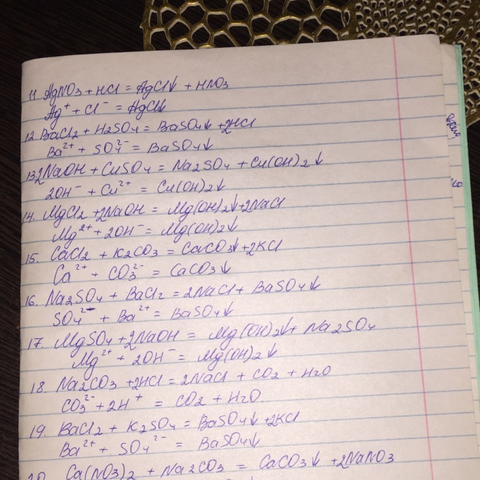 11. AgNO3 + HCl = AgCl↓ + HNO3
Ag⁺ + Cl⁻ = AgCl↓
12. BaCl2 + H2SO4 = BaSO4↓ + 2HCl
Ba²⁺ + SO4²⁻ = BaSO4↓
13. 2NaOH + CuSO4 = Na2SO4 + Cu(OH)2↓
2OH⁻ + Cu²⁺ = Cu(OH)2↓
14. MgCl2 + 2NaOH = Mg(OH)2↓ + 2NaCl
Mg²⁺ + 2OH⁻ = Mg(OH)2↓
15. CaCl2 + K2CO3 = CaCO3↓ + 2KCl
Ca²⁺ + CO3²⁻ = CaCO3↓
16. Na2SO4 + BaCl2 = 2NaCl + BaSO4↓
SO4²⁻ + Ba²⁺ = BaSO4↓
17. MgSO4 + 2NaOH = Mg(OH)2↓ + Na2SO4
Mg²⁺ + 2OH⁻ = Mg(OH)2↓
18. Na2CO3 + 2HCl = 2NaCl + CO2 + H2O
CO3²⁻ + 2H⁺ = CO2 + H2O
19. BaCl2 + K2SO4 = BaSO4↓ + 2KCl
Ba²⁺ + SO4²⁻ = BaSO4↓
20. Ca(NO3)2 + Na2CO3 = CaCO3↓ + 2NaNO3